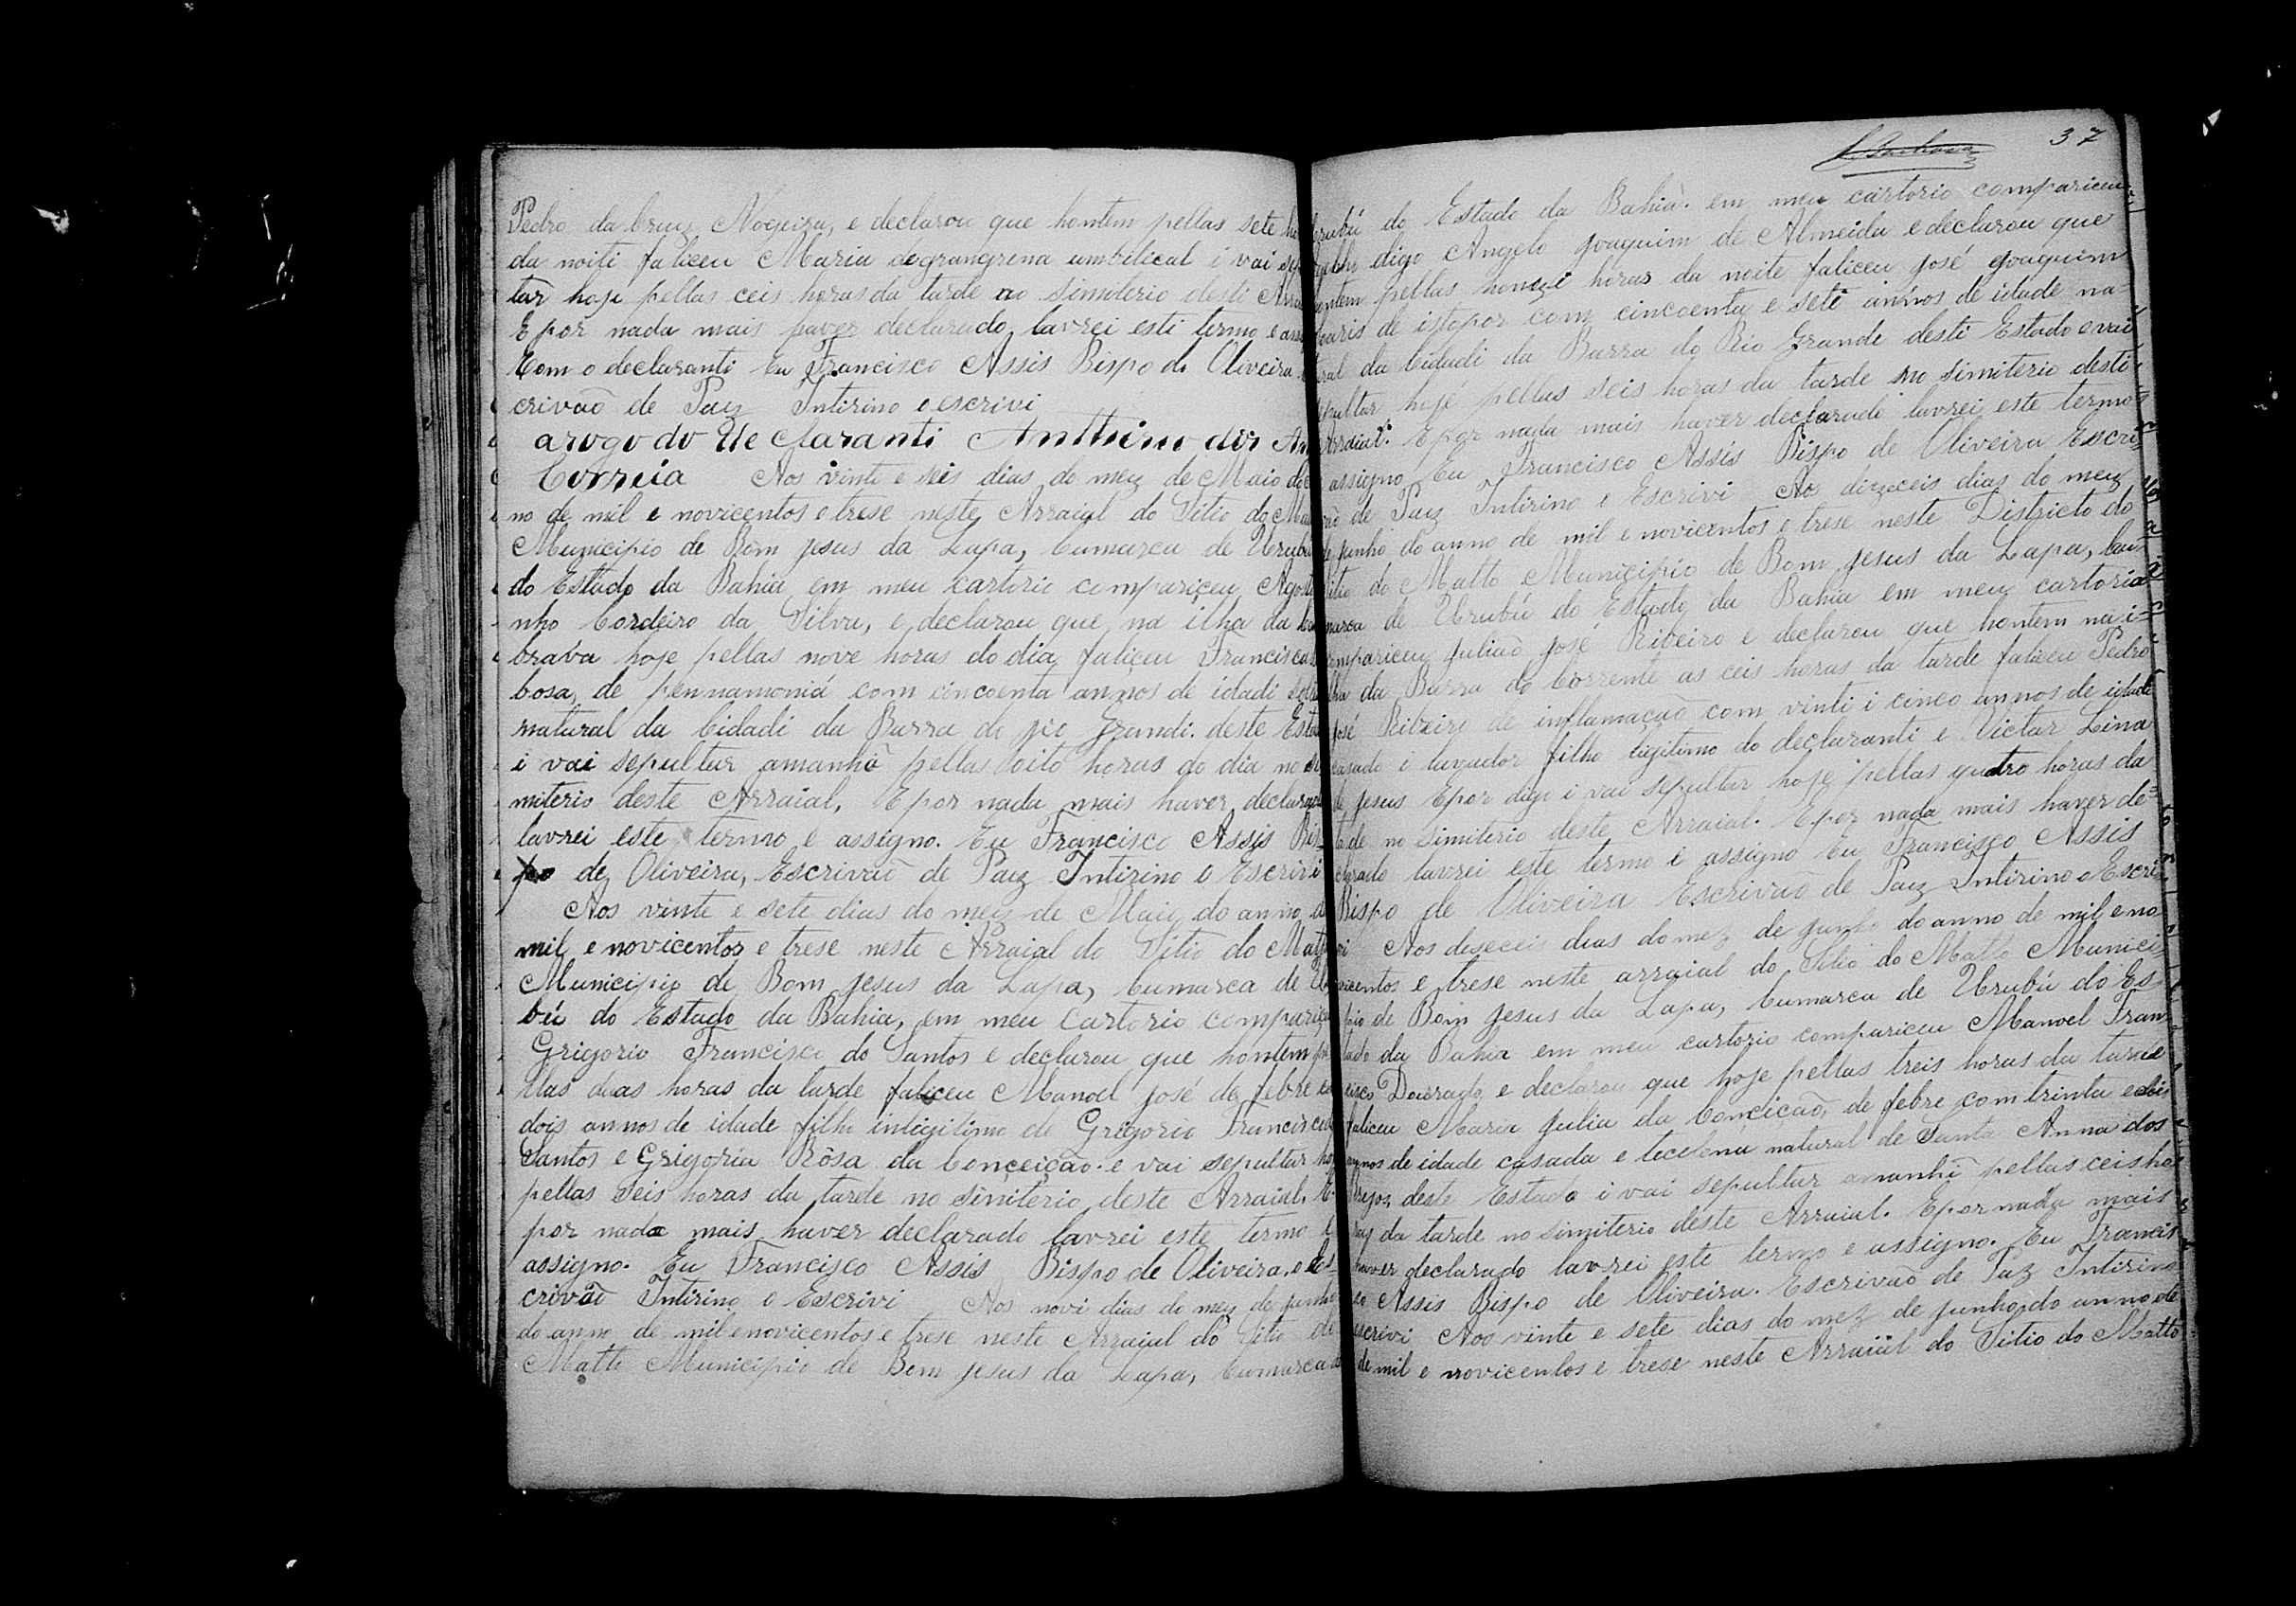 Pedro da Cruz Nogueira, e declarou que hontem pellas sete ho
da noiti faliceu Maria degrangrena umbilical i vai sepul
tar hoje pellas ceis horas da tarde no simiterio desti Arraial
E por nada mais haver declarado lavrei esti termo e assi
Com o declaranti Eu Francisco Assis Bispo de Oliveira
crivaõ de Paiz Intirino o escrivi
arogo do de Claranti Anthino dos An
Correia Aos vinte e seis dias do mez de Maio do
no de mil e novicentos e trese neste Arraial do Sitio do Ma
Municipio de Bom Jesus da Lapa, Cumarca de Urubú
do Estado da Bahia em meu cartorio compariceu Agosti
nho Cordeiro da Silva, e declarou que na ilha da
brava hoje pellas nove horas do dia faliceu Francisca
bosa, de pennamoniá com cincoenta annos de idadi
natural da Cidadi da Barra do rio Grandi. deste Esta
i vai sepultar amanhã pellas oito horas do dia no si
miterio deste Arraial, E por nada mais haver declarado
lavrei este termo e assigno. Eu Francisco Assis Bis
po de Oliveira, Escrivaõ de Paiz Intirino o Escrivi
Aos vinte e sete dias do mez de Maio do anno de
mil e novicentos e trese neste Arraial do Sitio do Matto
Municipio de Bom Jesus da Lapa, Cumarca de Uru
bú do Estado da Bahia, em meu Cartorio compariceu
Grigorio Francisco do Santos e declarou que hontem pe
llas duas horas da tarde faliceu Manoel José de febre
dois annos de idade filho intigitimo de Grigorio Francisco
Santos e Grigoria Rôsa da Conçeiçaõ. e vai sepultar ho
pellas seis horas da tarde no simiterio deste Arraial. E
por nada mais haver declarado lavrei este termo e
assigno. Eu Francisco Assis Bispo de Oliveira, o Es-
crivaõ Intirino o Escrivi Aos novi dias do mez de junho
do anno de mil e novicentos e trese neste Arraial do Sitio do
Matto Municipio de Bom Jesus da Lapa, Cumarca de
37
Urubú do Estado da Bahia. em meu cartorio compariceu
digo Angelo Joaquim de Almeida e declarou que
hontem pellas honzi horas da noite faliceu José Joaquim
de istopor com cincoenta e seti annos de idade na
tural da Cidadi da Barra do Rio Grande desti Estado e vai
sepultar hojé pellas seis horas da tarde no simiterio desti
Arraial. E por nada mais haver declarado lavrei este termo
assigno Eu Francisco Assis Bispo de Oliveira Escri-
vaõ de Paiz Intirino o Escrivi Aos dizaceis dias do mez
de junho do anno de mil e novicentos e trese neste Districto do
Sitio do Matto Municipio de Bom Jesus da Lapa, Cu
marca de Urubú do Estado da Bahia em meu cartorio
compariceu Juliaõ José Ribeiro e declarou que hontem na i-
lha da Barra do Corrente as ceis horas da tarde faliceu Pedro
José Ribeiro de inflamaçaõ com vinti i cinco annos de idade
casado i lavrador filho ligitimo do declaranti e Victar Lina
de Jesus E por digo i vai sepultar hoje pellas quatro horas da
tarde no simiterio deste Arraial. E por nada mais haver de-
clarado lavrei este termo e assigno Eu Francisco Assis
Bispo de Oliveira Escrivaõ de Paiz Intirino o Escri
vi Aos deseceis dias do mez de junho do anno de mil e no
vicentos e trese neste arraial do Sitio do Matto Munici-
pio de Bom Jesus da Lapa, Cumarca de Urubú do Es
tado da Bahia em meu cartorio compariceu Manoel Fran
cisco Dourado, e declarou que hoje pellas treis horas da tarde
faliceu Maria Julia da Conciçaõ, de febre com trinta e dois
annos de idade casada e tecelená natural de Santa Anna dos
Brejos, deste Estado i vai sepultar amanhã pellas ceis ho
ras da tarde no simiterio deste Arraial. E por nada mais
haver declarado lavrei este termo e assigno. Eu Francis
co Assis Bispo de Oliveira. Escrivaõ de Paz Intirino
escrivi Aos vinte e sete dias do mez de junho, do anno de
de mil e novicentos e trese neste Arraial do Sitio do Matto